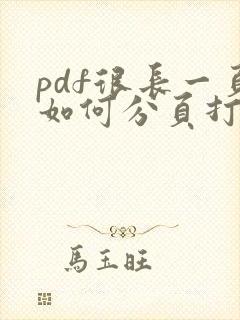 pdf很長一頁
如何分頁打
馬玉旺